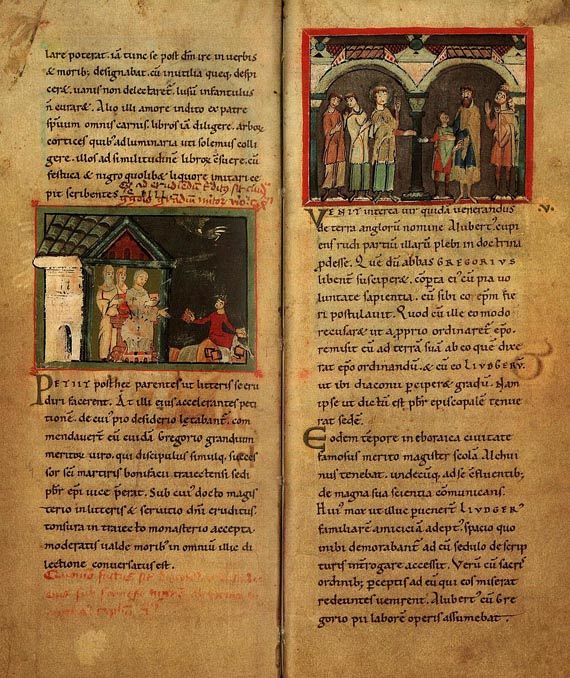 lare poterat. iā tunc se post dm̄ ire in verbis
& morib; designabat. cū inutilia queq, despi
ceret. uanis non delectaret. lusū infantulus
ñ curaret. Alio illi amore indito ex patre
spirituum omnis carnis. libros iā diligere. arborū
cortices quib; ad luminaria uti solemus colli
gere. illos ad similitudinē librorū consuere. cū
festuca & nigro quolib& liquore imitari ce
pit scribentes.
PETIIT posthęc parentes ut litteris se eru
diri facerent. At illi ejus accelerantes peti
tionē. de cuius pio desiderio letabantur. com
mendauerunt eū cuidā Gregorio grandium
meritorū uiro. qui discipulus simulq; succes
sor sc̄i martiris bonifacii traiectensi sedi
pbr̄ epī uice preerat. Sub cuius docto magis
terio in litteris & seruitio dn̄i eruditus.
tonsura in traiecto monasterio accepta.
moderatis ualde morib; in omniū illic di
lectione conuersatus est.
VENIT interea uir quidā uenerandus
de terra anglorū nomine Alubert. cupi
ens rudi partiū illarū plebi in doctrina
prodesse. Quē dū abbas GREGORIUS
libenter susciperet. comperta eius cū pia uo
luntate sapientia. eū sibi coepm̄ fie
ri postulauit. Quod cū ille eo modo
recusaret ut a proprio ordinaretur epō.
remisit eū ad terrā suā ab eo quē dixe
rat epō ordinandū. & cū eo LIUDGERU.
ut ibi diaconii perciperet gradū. Nam
ipse ut dictū est pbr̄ episcopalē tenue
rat sedē.
Eodem tempore in eboraica ciuitate
famosus merito magister scolā Alchui
nus tenebat. undecūq, ad se confluentib;
de magna sua scientia communicans.
Huic mox ut illuc peruenerunt LIUDGERUS
familiarē amiciciā adeptus. spacio quo
inibi demorabantur ad eū sedulo de scrip
turis interrogare accessit. Verū cū sacris
ordinib; perceptis ad eū qui eos miserat
redeuntes uenirent. Alubertus cū Gre
gorio pii laborem operis assumebat.